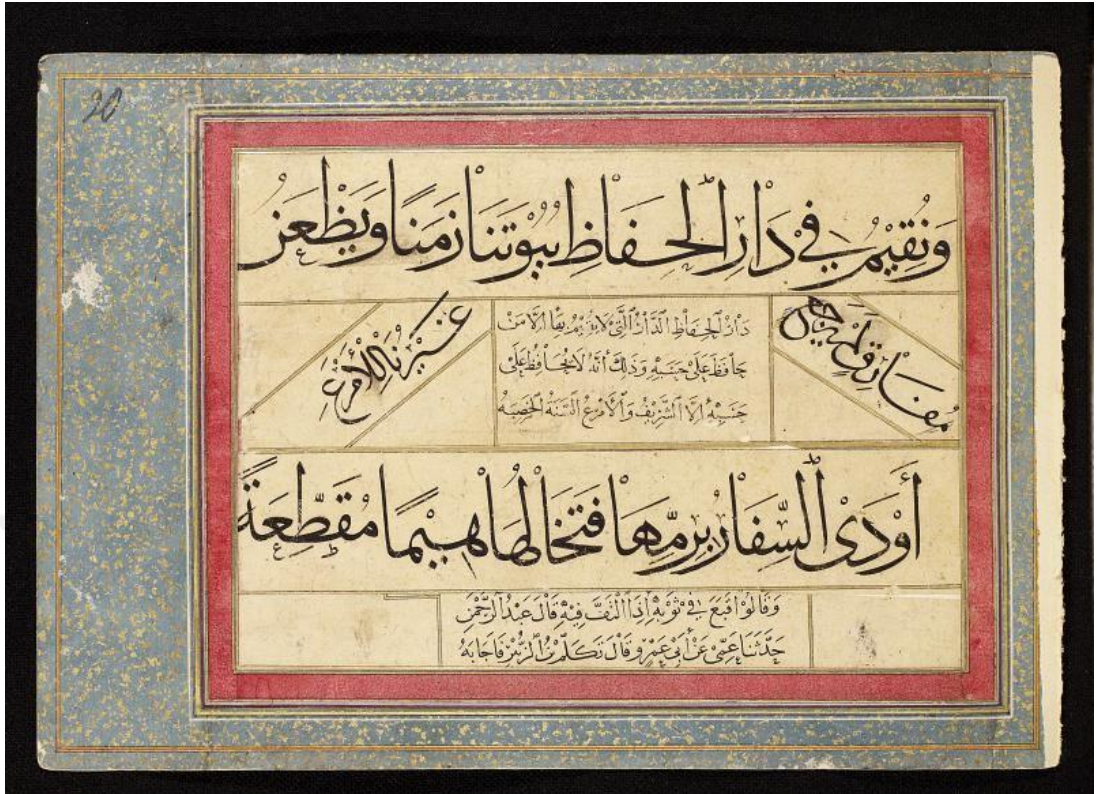 وَنُقِيْمُ فِيْ دَاْرِ اَلْحِفَاْظِ بُيُوْتَنَا زَمَنًا وَيَظْعَنُ
غَيْرُنَا لِلْأَمْرَعِ
دَاْرُ اَلْحِفَاْظِ اَلدَّاْرُ اَلَّتِيْ لَا يُقِيْمُ بِهَا إِلَّا مَنْ
حَاْفَظَ عَلَىْ حَسَبِهِ وَذَلِكَ أَنَّهُ لَا يُحَاْفِظُ عَلَىْ
حَسَبِهِ إِلَّا اَلشَّرِيْفُ وَاَلْأَمْرَعُ اَلسَّنَةُ اَلْخَصِبَهُ
أَوْدَى اَلسِّفَاْرُ بِرِمِّهَا فَتَخَاْلُهَا هِيْمًا مُقَطَّعَةً
وَقَاْلُوْا قَبَعَ فِيْ ثَوْبِهِ إِذَا اَلْتَفَّ فِيْهِ قَاْلَ عَبْدُ اَلرَّحْمَنِ
حَدَّثَنَا عَمِّيْ عَنْ أَبِيْ عَمْرٍو قَاْلَ تَكَلَّمَ بْنُ اَلزُّبَيْرِ فَأَجَابَهُ
20